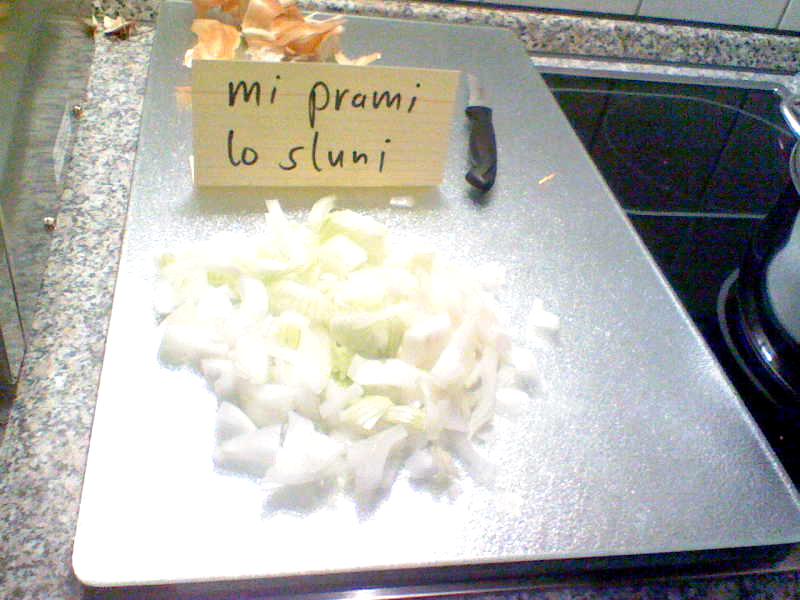 mi prami
lo sluni